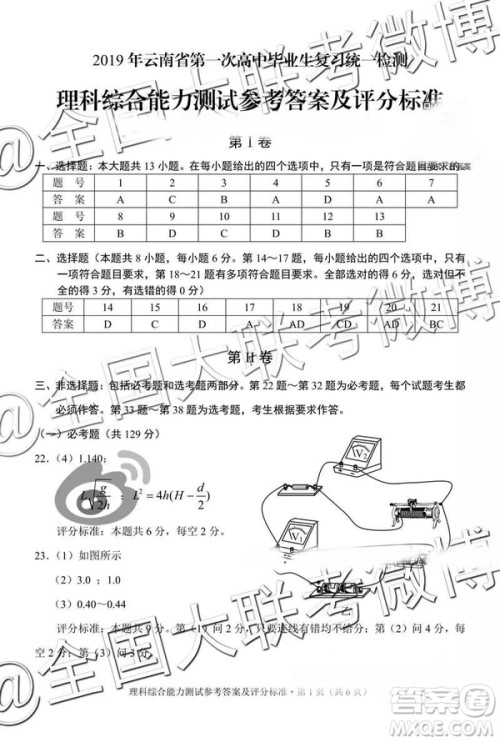 2019 年云南省第一次高中毕业生复习统一检测
理科综合能力测试参考答案及评分标准
第 I 卷
一、选择题：本大题共 13 小题。在每小题给出的四个选项中，只有一项是符合题目要求的。
题 号 1 2 3 4 5 6 7
答 案 A C B A D A A
题 号 8 9 10 11 12 13
答 案 D B D C B C
二、选择题（本题共 8 小题，每小题 6 分。第 14～17 题，每小题给出的四个选项中，只有一
项符合题目要求，第 18～21 题有多项符合题目要求。全部选对的得 6 分，选对但不
全的得 3 分，有选错的得 0 分）
题号 14 15 16 17 18 19 20 21
答案 D C D C BD AC AD BC
第 II 卷
三、非选择题：包括必考题和选考题两部分。第 22 题～第 32 题为必考题，每个试题考生都
必须作答。第 33 题～第 38 题为选考题，考生根据要求作答。
（一）必考题（共 129 分）
22.（4）1.140；
L√(g/2h)；L²=4h(H−d/2)
评分标准：本题共 6 分，每空 2 分。
23.（1）如图所示
（2）3.0；1.0
（3）0.40～0.44
V₂
V₁
乙
评分标准：本题共 9 分。第（1）问 2 分，只要连线有错均不给分；第（2）问 4 分，每
空 2 分；第（3）问 3 分。
理科综合能力测试参考答案及评分标准·第 1 页（共 6 页）
@全国大联考微博
@全国大联考微博
@全国大联考微博
答案圈
MXQE.COM